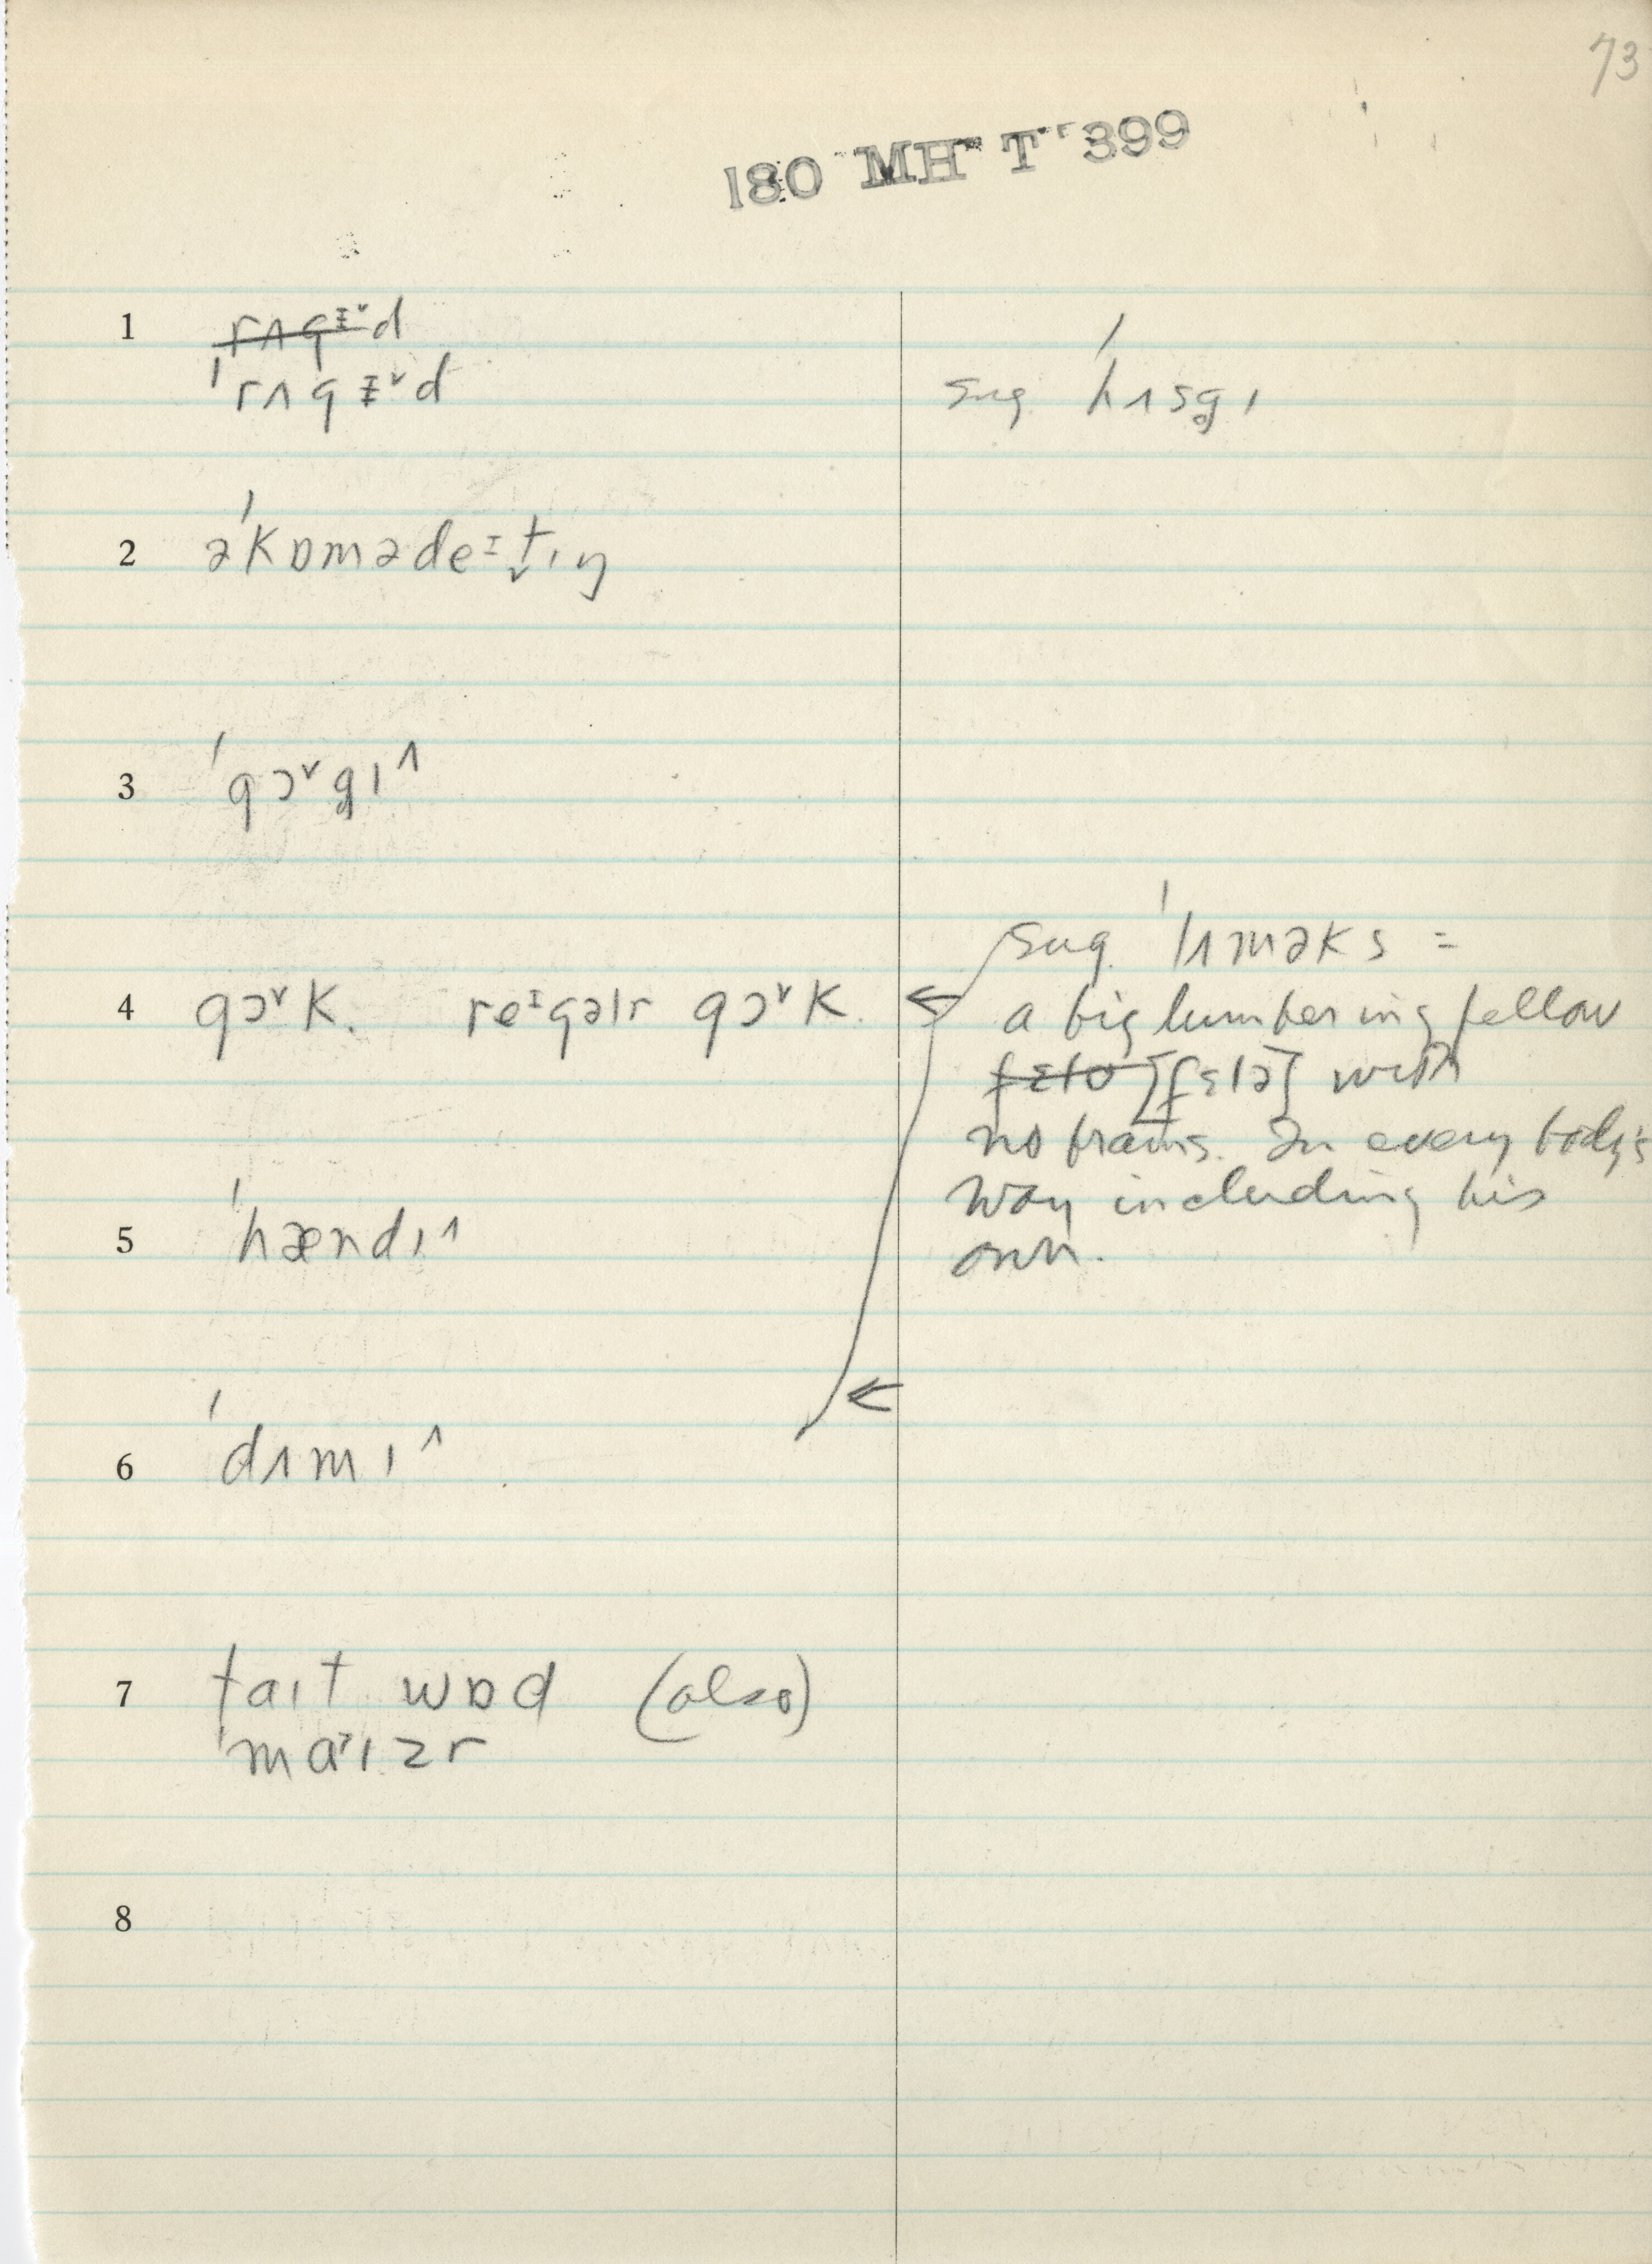 73
180 MH T 399
1 rʌgɨᵛd
ˈrʌgɨᵛd
sug. ˈhʌsg̥ɪ
2 əˈkɒmədeᶦt̬ɪŋ
3 ˈgɔᵛg̥ɪ^
4 gɔᵛk. reᶦgəlr gɔᵛk.
sug. ˈlʌməks =
a big lumbering fellow
fɛlo [fɛlə] with
no brains. In every body's
way including his
own.
5 ˈhændɪ^
6 ˈdʌmɪ^
7 taɪt wɒd (also)
ˈmaɪzr
8